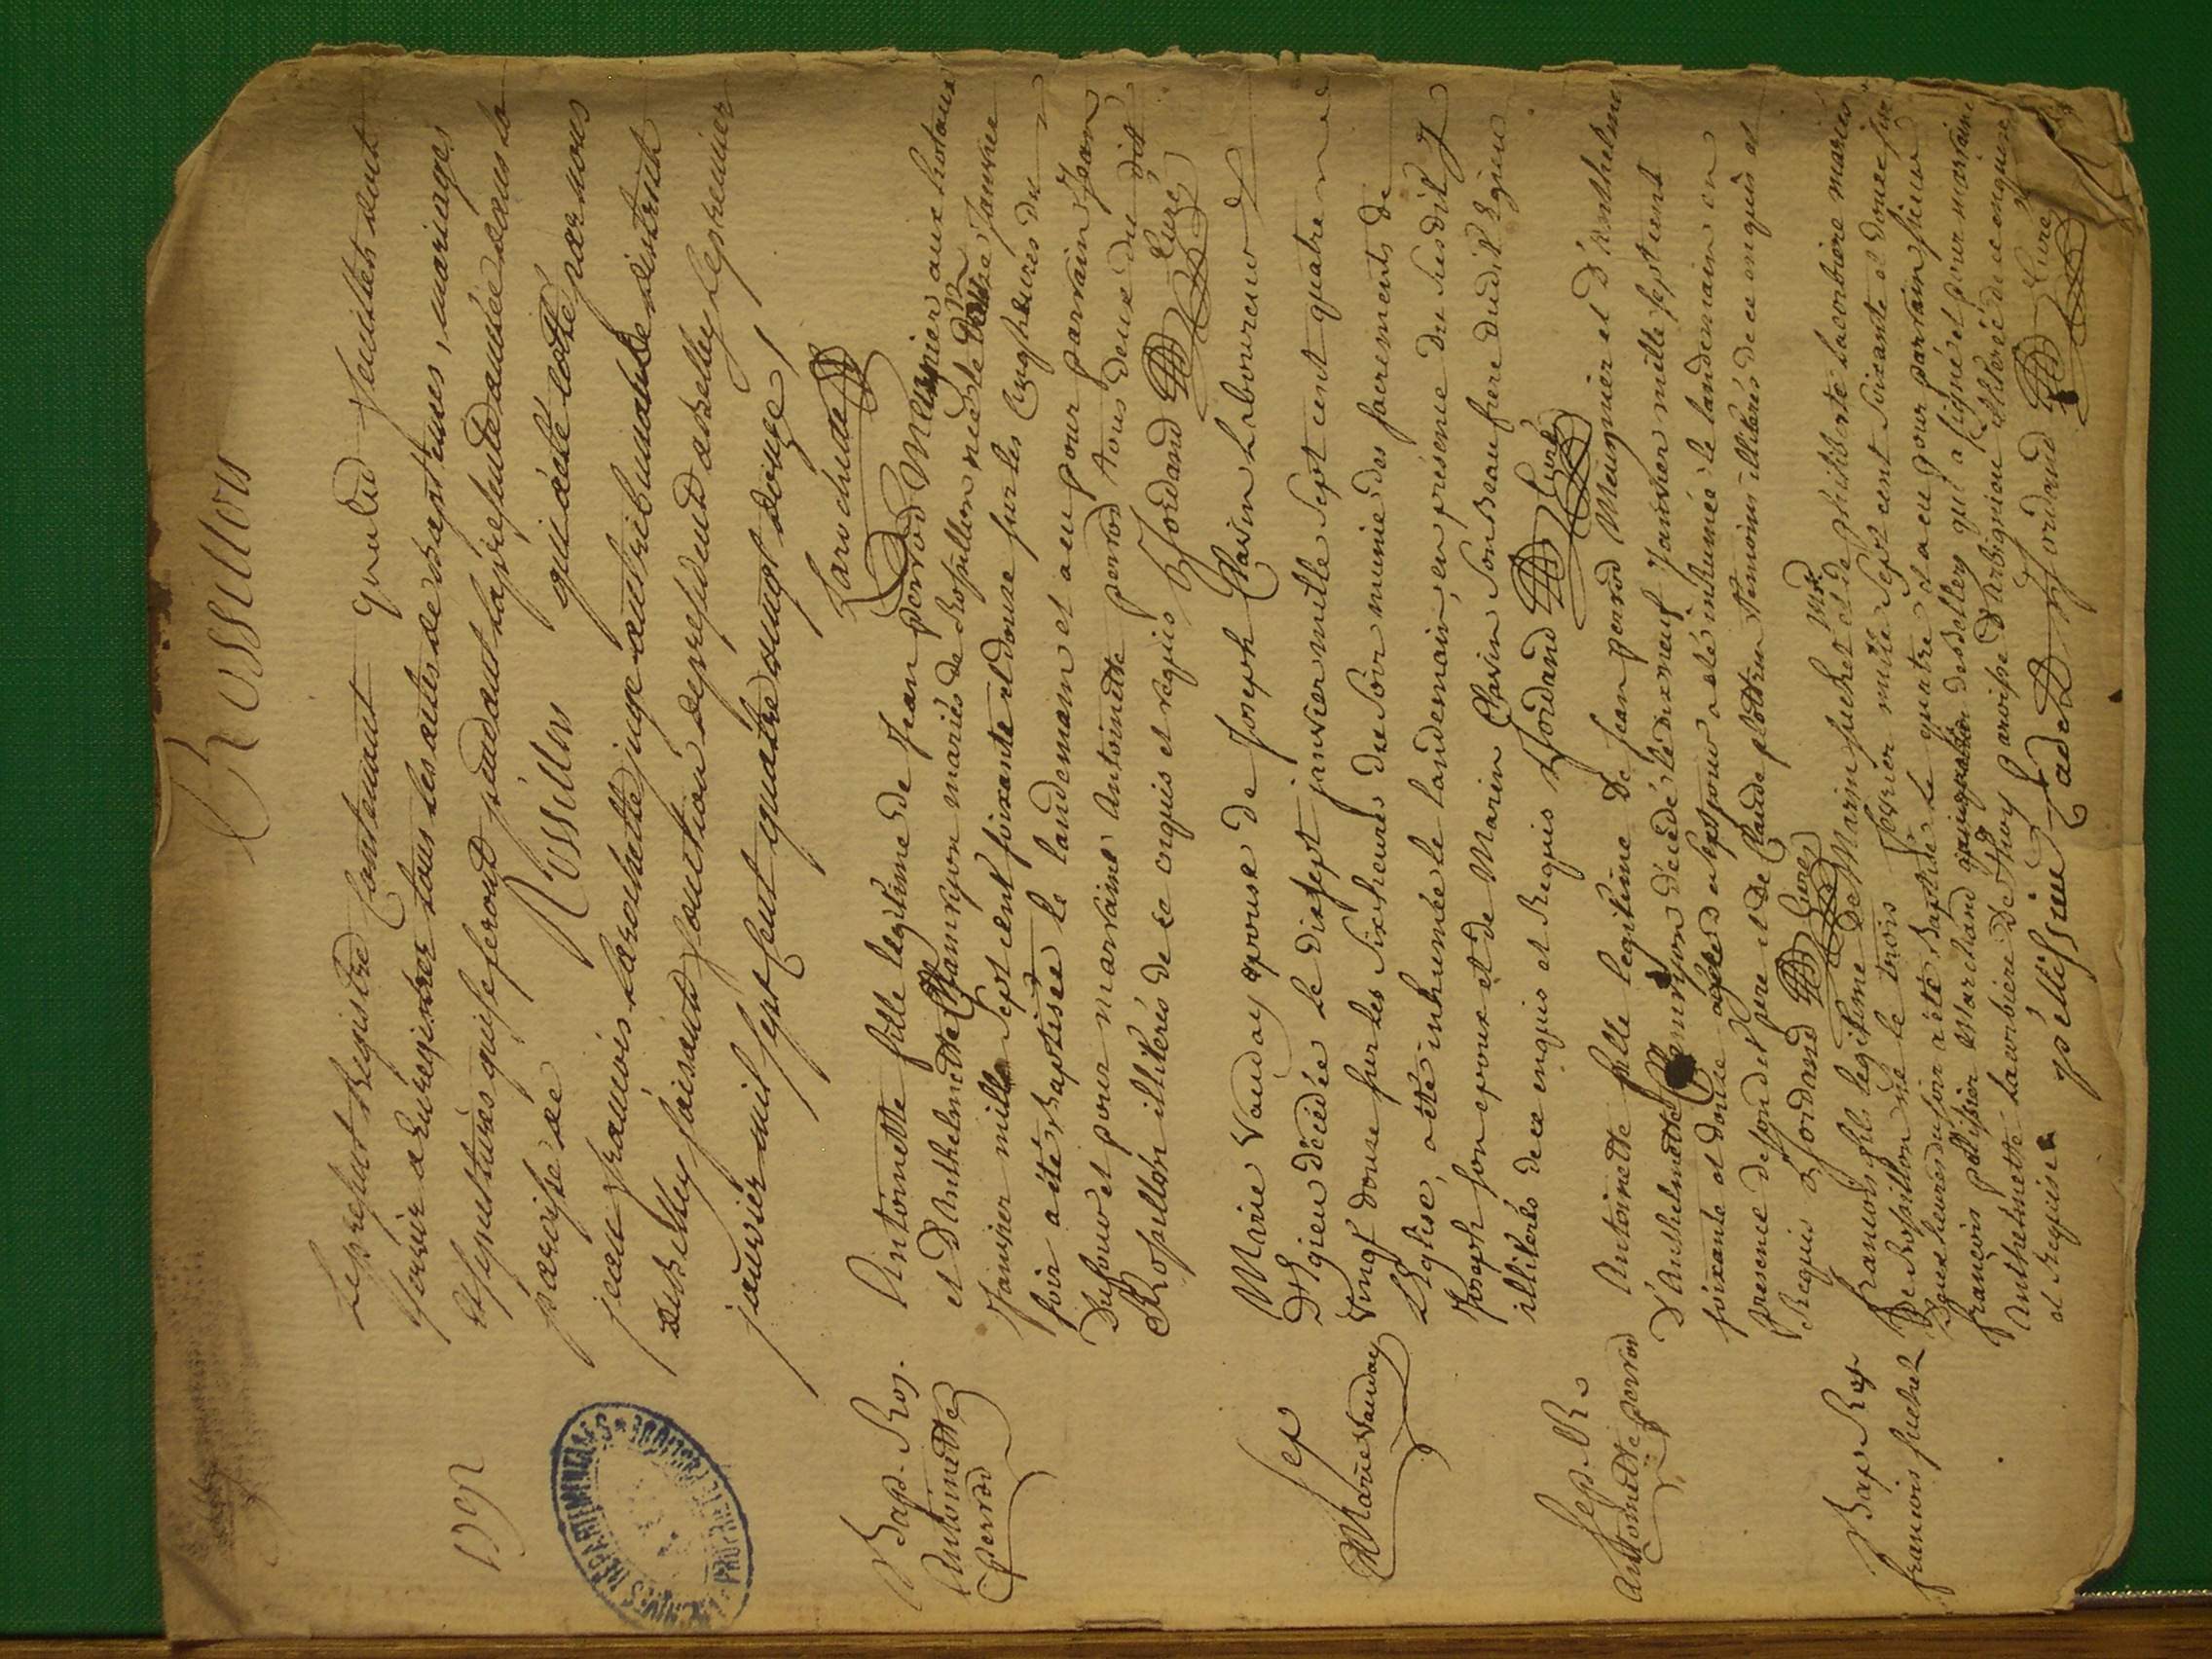 Rossillon
1792
Le present Registre Contenant quatre feuillets doit
servir a enregistrer tous les actes de baptemes, mariages
et sepultures qui se feront pendant la presente année dans la
paroisse de Rossillon qui a été cotté par nous
jean françois Larochette juge au tribunal de district
de Belley faisant fonction de president a Belley le premier
janvier mil sept cent quatre vingt douze /.
Larochette
ARCHIVES DEPARTEMENTALES
PROPRIÉTÉ PUBLIQUE
Bapt. Ros.
Antoinette
perrod
Antoinette fille legitime de Jean perrod Meusnier aux hotaux
et D'Anthelmette Chamvijon mariés de Rossillon née le Douze Janvier
Janvier mille sept cent soixante et douze sur les cinq heures du
soir a été Baptisée le landemain et a eu pour parrain Jean
Dufour et pour marraine Antoinette perrod tous deux du dit
Rossillon illiterés de ce enquis et requis Jordand Curé
Sep
Marie Vauday
Marie Vauday epouse de Joseph Clavin Laboureur
D'Egieu décédée le dix sept janvier mille sept cent quatre
vingt douze sur les Six heures du Soir munie des sacrements de
L'Eglise, a été inhumée le landemain, en présence du Susdit J
Joseph son epoux et de Marin Clavin Son Beaufrere dudit Egieu
illiterés de ce enquis et Requis Jordand Curé
Sep. R.
Antoinette perrod
Antoinette fille legitime De Jean perrod Meusnier et D'Anthelme
D'Anthelmette Chamvijon décédé le dixneuf Janvier mille sept cent
soixante et douze agée d sept jour a été inhumée le landemain en
presence de son dit pere et De Claude plottin Temoins illiterés de ce enquis et
Requis Jordand Curé
Bap Ros
francois fuchet
francois fils legitime De Marin fuchet et de philiberte Lacombiere mariés
De Rossillon né le trois fevrier mille Sept cent Soixante et douze sur
Deux heures du soir a été Baptisé le quatre et a eu pour parrain sieur
françois pelissier Marchand de Belley qui a signé et pour marraine
Anthelmette Lacombiere de Thoy paroisse D'arbignieu illiterée de ce enquise
et Requise
pellissier Cadet Jordand Curé